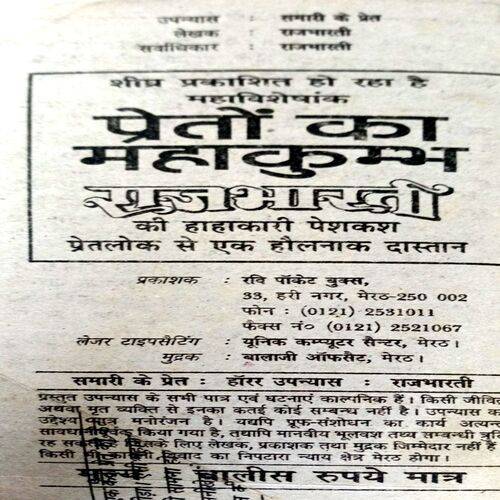 उपन्यास : समारी के प्रेत
लेखक : राजभारती
सर्वाधिकार : राजभारती
शीघ्र प्रकाशित हो रहा है
महाविशेषांक
प्रेतों का
महाकुम्भ
राजभारती
की हाहाकारी पेशकश
प्रेतलोक से एक हौलनाक दास्तान
प्रकाशक : रवि पॉकेट बुक्स,
33, हरी नगर, मेरठ-250 002
फोन : (0121) 2531011
फैक्स नं० (0121) 2521067
लेजर टाइपसैटिंग : यूनिक कम्प्यूटर सैन्टर, मेरठ।
मुद्रक : बालाजी ऑफसैट, मेरठ।
समारी के प्रेत : हॉरर उपन्यास : राजभारती
प्रस्तुत उपन्यास के सभी पात्र एवं घटनाएं काल्पनिक हैं। किसी जीवित
अथवा मृत व्यक्ति से इनका कतई कोई सम्बन्ध नहीं है। उपन्यास का
उद्देश्य मात्र मनोरंजन है। यद्यपि प्रूफ-संशोधन का कार्य अत्यन्त
किया गया है, तथापि मानवीय भूलवश तथ्य सम्बन्धी त्रुटि
रह सकती है जिसके लिए लेखक, प्रकाशक तथा मुद्रक जिम्मेदार नहीं हैं
किसी भी कानूनी विवाद का निपटारा न्याय क्षेत्र मेरठ होगा।
चालीस रुपये मात्र